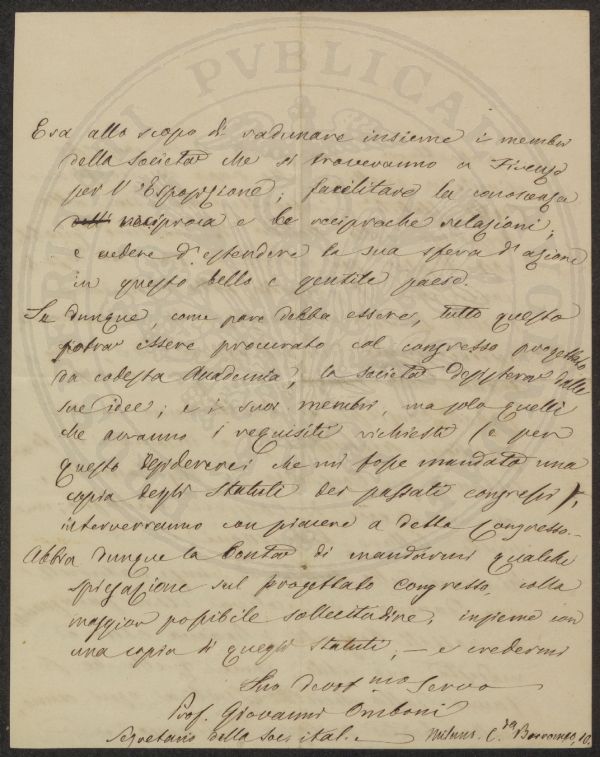 Era allo scopo di radunare insieme i membri
della Società che si troveranno a Firenze
per l'Esposizione; facilitare la conoscenza
reciproca e le reciproche relazioni;
e vedere d'estendere la sua sfera d'azione
in questo bello e gentile paese.
Se dunque, come pare debba essere, tutto questo
potrà essere procurato col congresso progettato
da codesta Accademia, la società desisterà dalle
sue idee; e i suoi membri, ma solo quelli
che avranno i requisiti richiesti (e per
questo desidererei che mi fosse mandata una
copia degli Statuti dei passati congressi),
interverranno con piacere a detto Congresso.
Abbia dunque la bontà di mandarmi qualche
spiegazione sul progettato congresso, colla
maggior possibile sollecitudine, insieme con
una copia di quegli Statuti, — e credermi
Suo devot.mo Servo
Prof. Giovanni Omboni
Segretario della Soc. ital.e Milano. C.da Borromeo, 10.